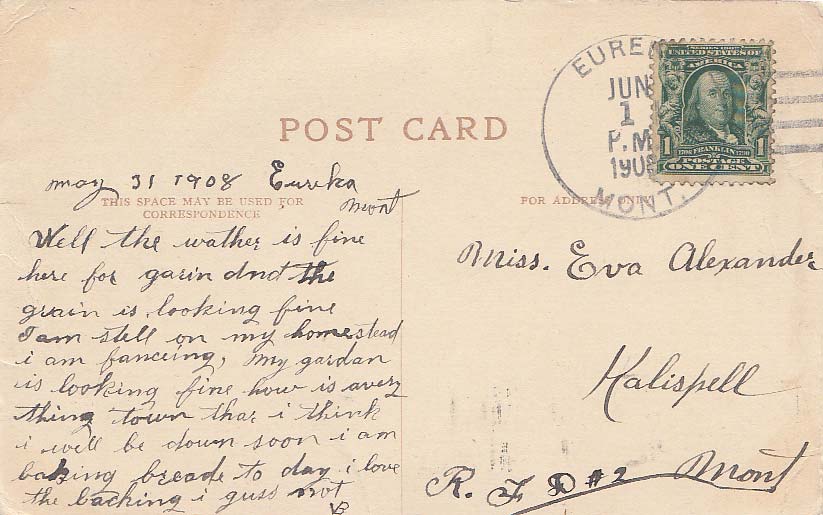 EUREK
JUN
1
P.M
1908
MONT.
SERIES 1902
UNITED STATES OF
AMERICA
1706 FRANKLIN 1790
1 POSTAGE 1
ONE CENT
POST CARD
may 31 1908 Eureka
mont
THIS SPACE MAY BE USED FOR
CORRESPONDENCE
FOR ADDRESS ONLY
Well the wather is fine
here for garin and the
grain is looking fine
I am stell on my homestead
i am fanceing, my gardan
is looking fine how is avery
thing town thar i think
i will be down soon i am
baking breade to day i love
the baching i guss not
Miss. Eva Alexander
Kalispell
R. F D #2 Mont